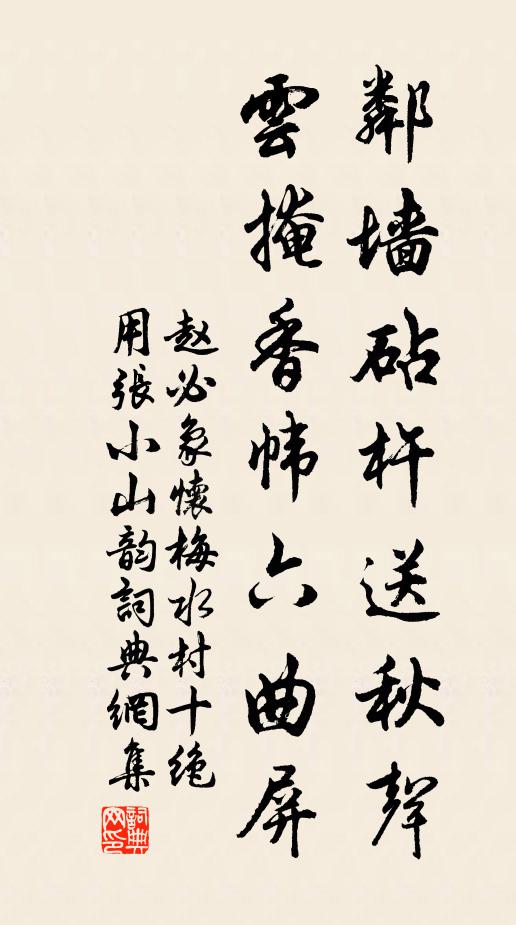 鄰墙砧杵送秋聲
雲掩香幃六曲屏
赵必象懷梅水村十绝
用張小山韵詞典網集
詞典网印